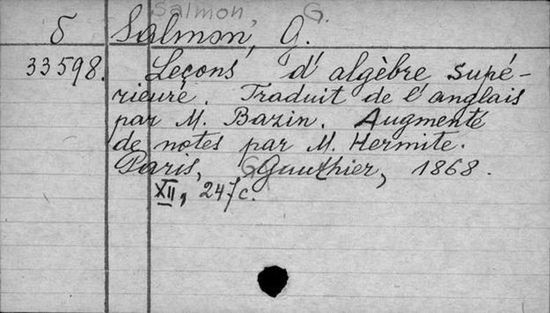 Salmon, G.
Б Salmon, G.
33598. Leçons d'algèbre supé-
rieure. Traduit de l'anglais
par M. Bazin. Augmenté
de notes par M. Hermite.
Paris, Gauthier, 1868.
XII, 247c.